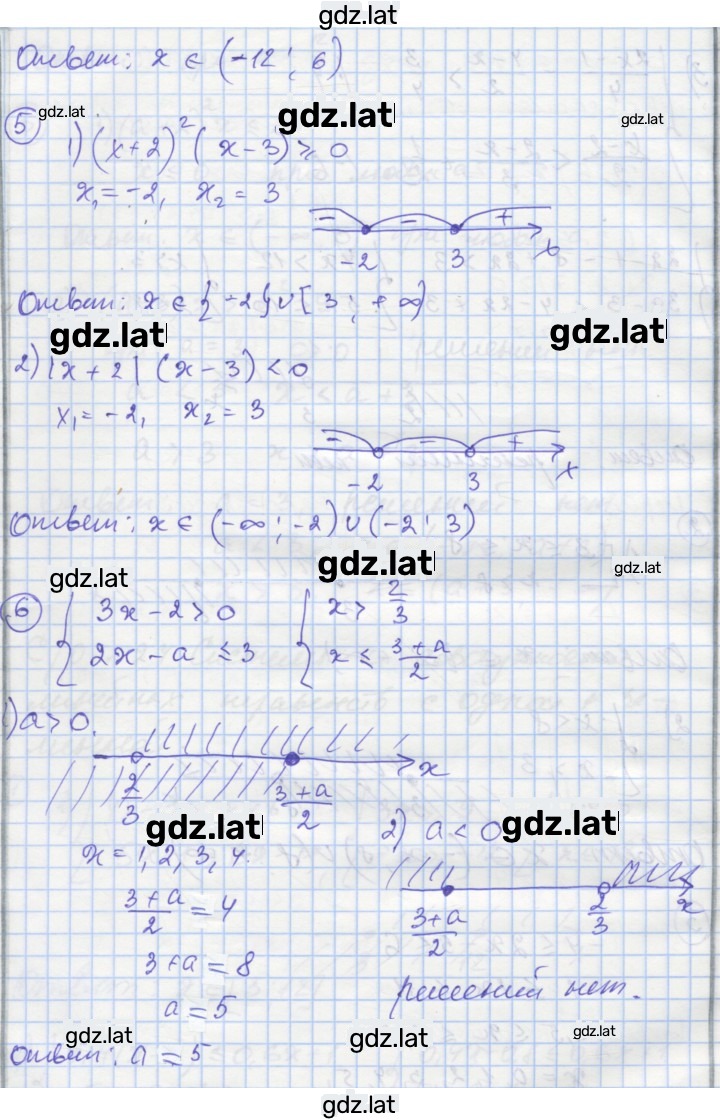 gdz.lat
Ответ: x ∈ (-12; 6)
gdz.lat gdz.lat gdz.lat
5
1) (x+2)² (x-3) ≥ 0
x₁ = -2, x₂ = 3
- - +
-2 3 x
Ответ: x ∈ {-2} ∪ [3; +∞)
gdz.lat gdz.lat
2) |x+2| (x-3) < 0
x₁ = -2, x₂ = 3
- - +
-2 3 x
Ответ: x ∈ (-∞; -2) ∪ (-2; 3)
gdz.lat gdz.lat gdz.lat
6 { 3x - 2 > 0 { x > 2/3
{ 2x - a ≤ 3 { x ≤ (3+a)/2
1) a > 0.
x
2/3 (3+a)/2
gdz.lat 2) a < 0 gdz.lat
x = 1, 2, 3, 4.
x
(3+a)/2 = 4 (3+a)/2 2/3
3 + a = 8
решений нет.
a = 5
gdz.lat gdz.lat gdz.lat
Ответ: a = 5
gdz.lat